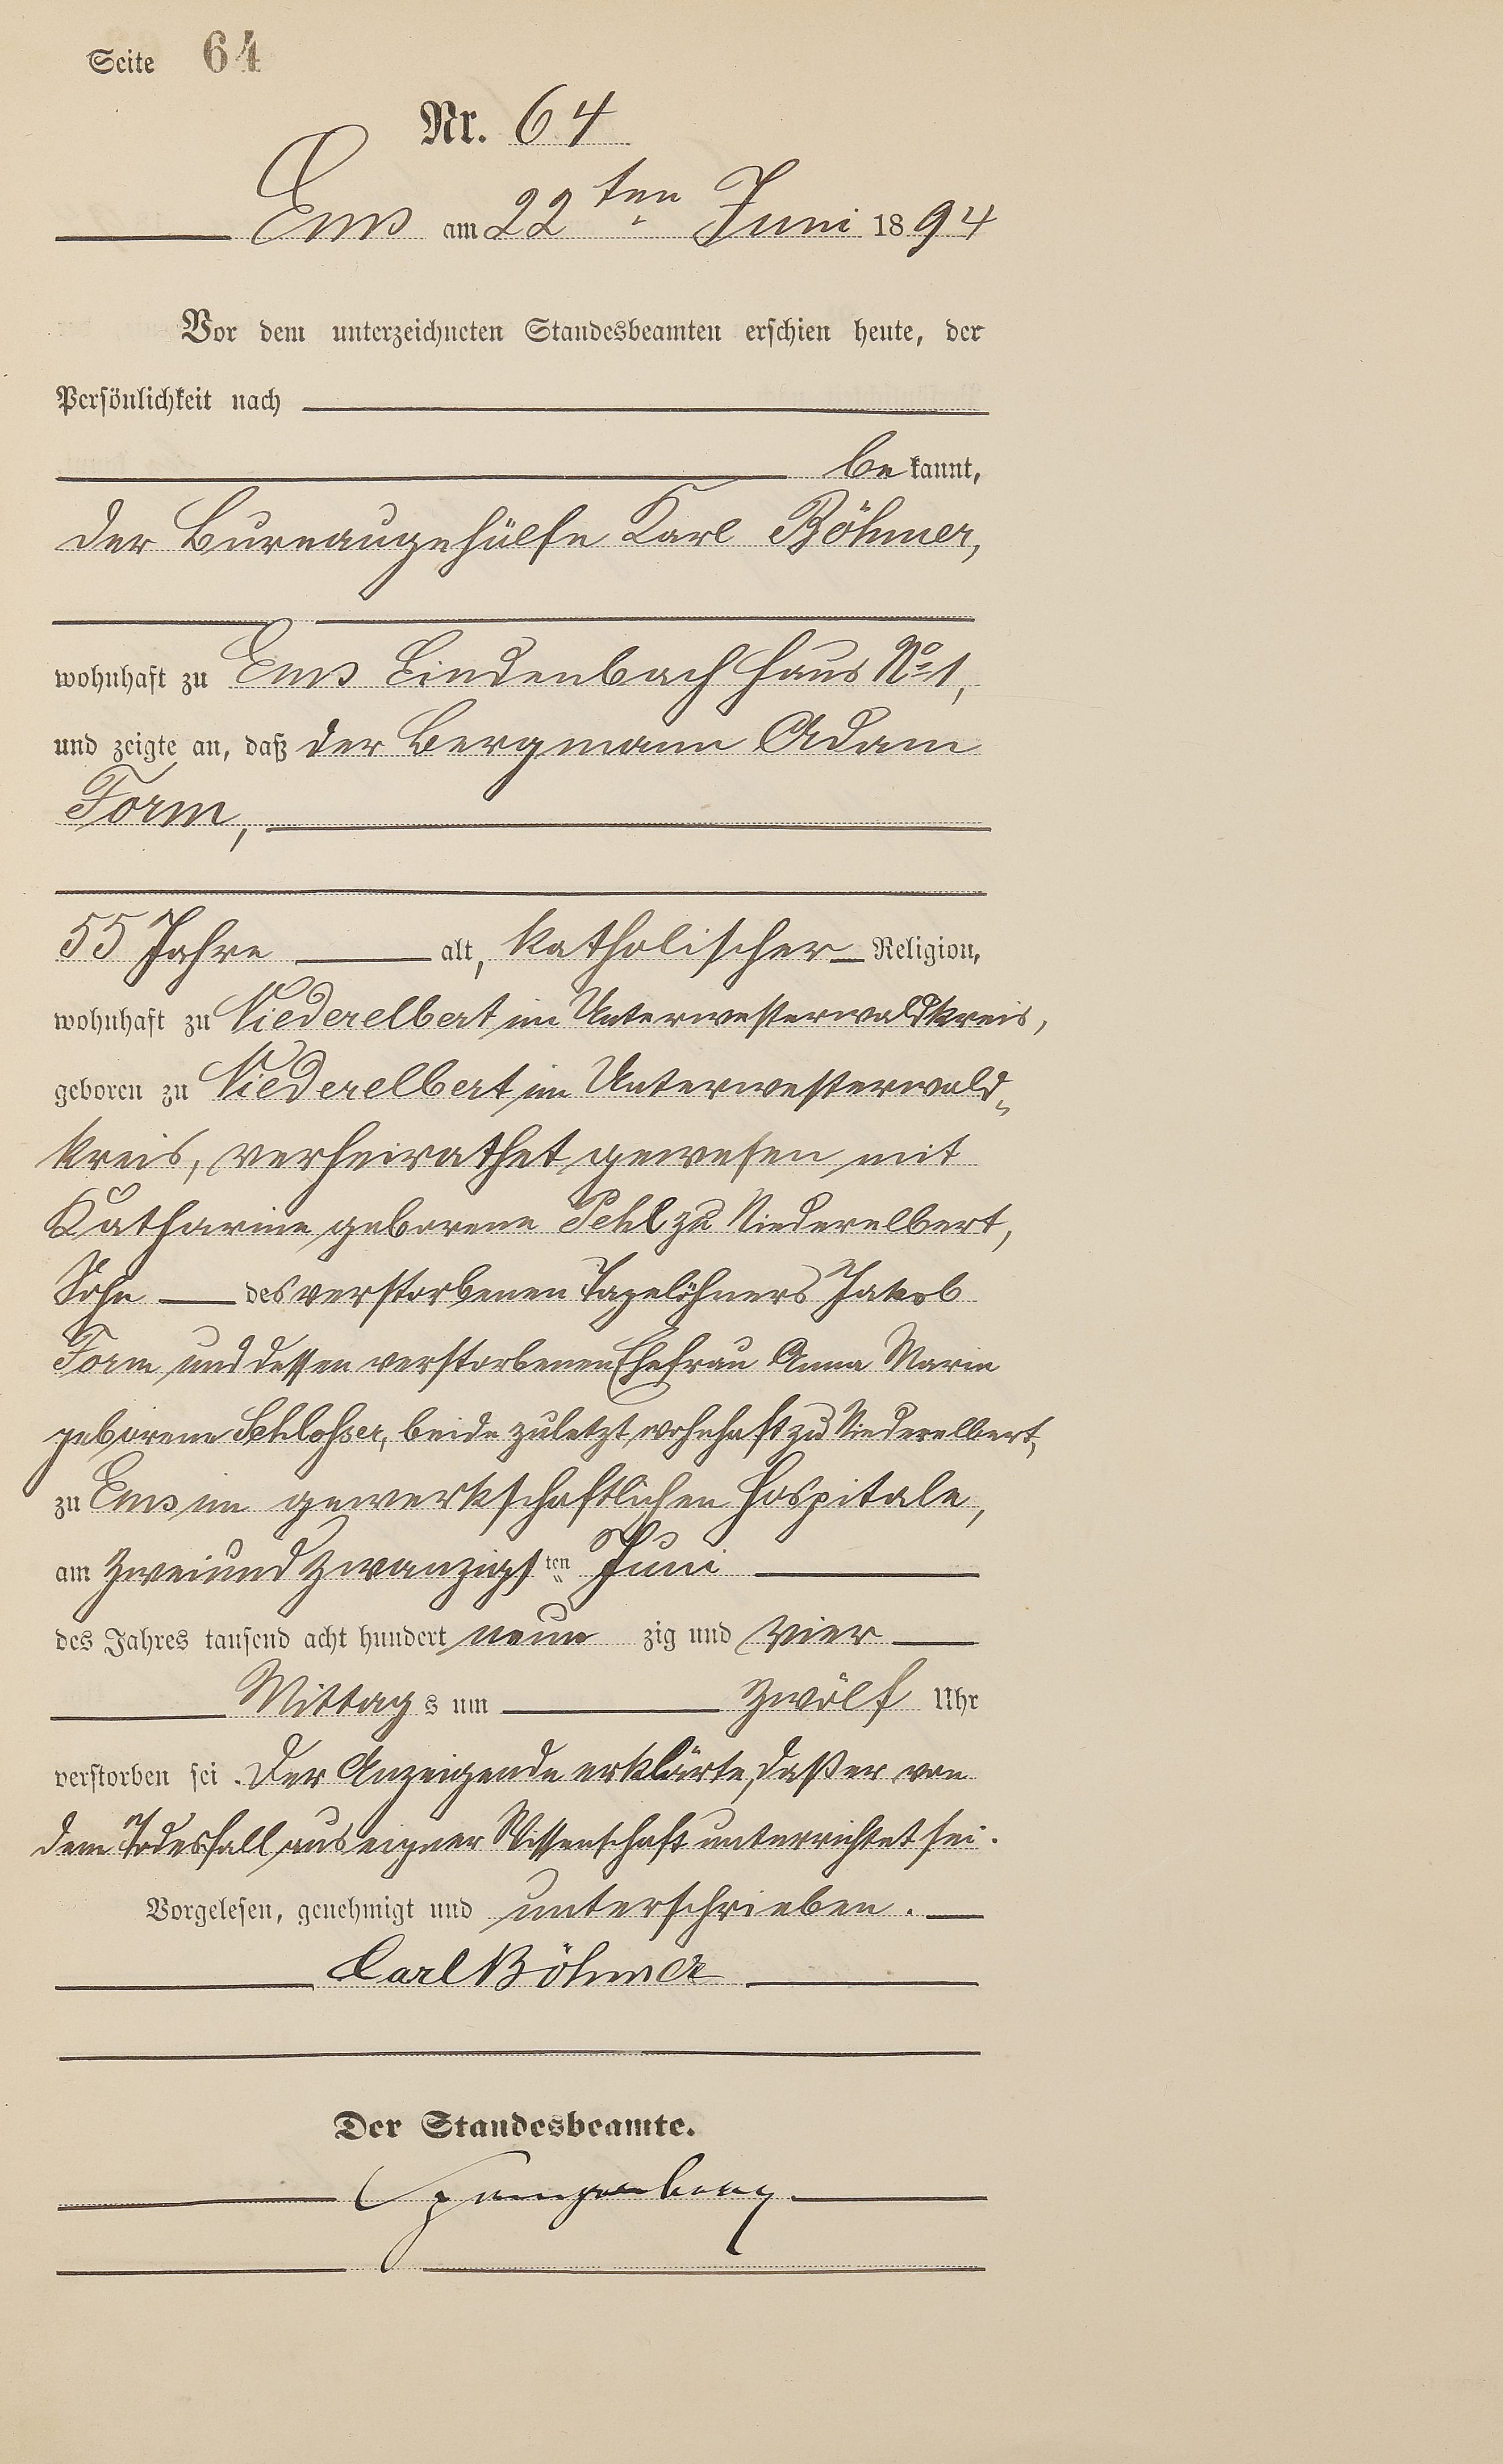 Seite 64
Nr. 64
Ems am 22ten Juni 1894
Vor dem unterzeichneten Standesbeamten erschien heute, der
Persönlichkeit nach
bekannt,
der Bureaugehülfe Karl Böhmer,
wohnhaft zu Ems Lindenbach Haus No 1,
und zeigte an, daß der Bergmann Adam
Form,
55 Jahre alt, katholischer Religion,
wohnhaft zu Niederelbert im Unterwesterwaldkreis,
geboren zu Niederelbert im Unterwesterwald„
kreis, verheirathet gewesen mit
Katharine geborene Pehl zu Niederelbert,
Sohn des verstorbenen Tagelöhners Jakob
Form und dessen verstorbenen Ehefrau Anna Marie
geborene Schlosser, beide zuletzt wohnhaft zu Niederelbert,
zu Ems im gewerkschaftlichen Hospitale,
am zweiundzwanzigsten Juni
des Jahres tausend acht hundert neunzig und vier
Mittags um zwölf Uhr
verstorben sei. Der Anzeigende erklärte, daß er von
dem Todesfall aus eigner Wissenschaft unterrichtet sei.
Vorgelesen, genehmigt und unterschrieben.
Carl Böhmer
Der Standesbeamte.
Spangenberg